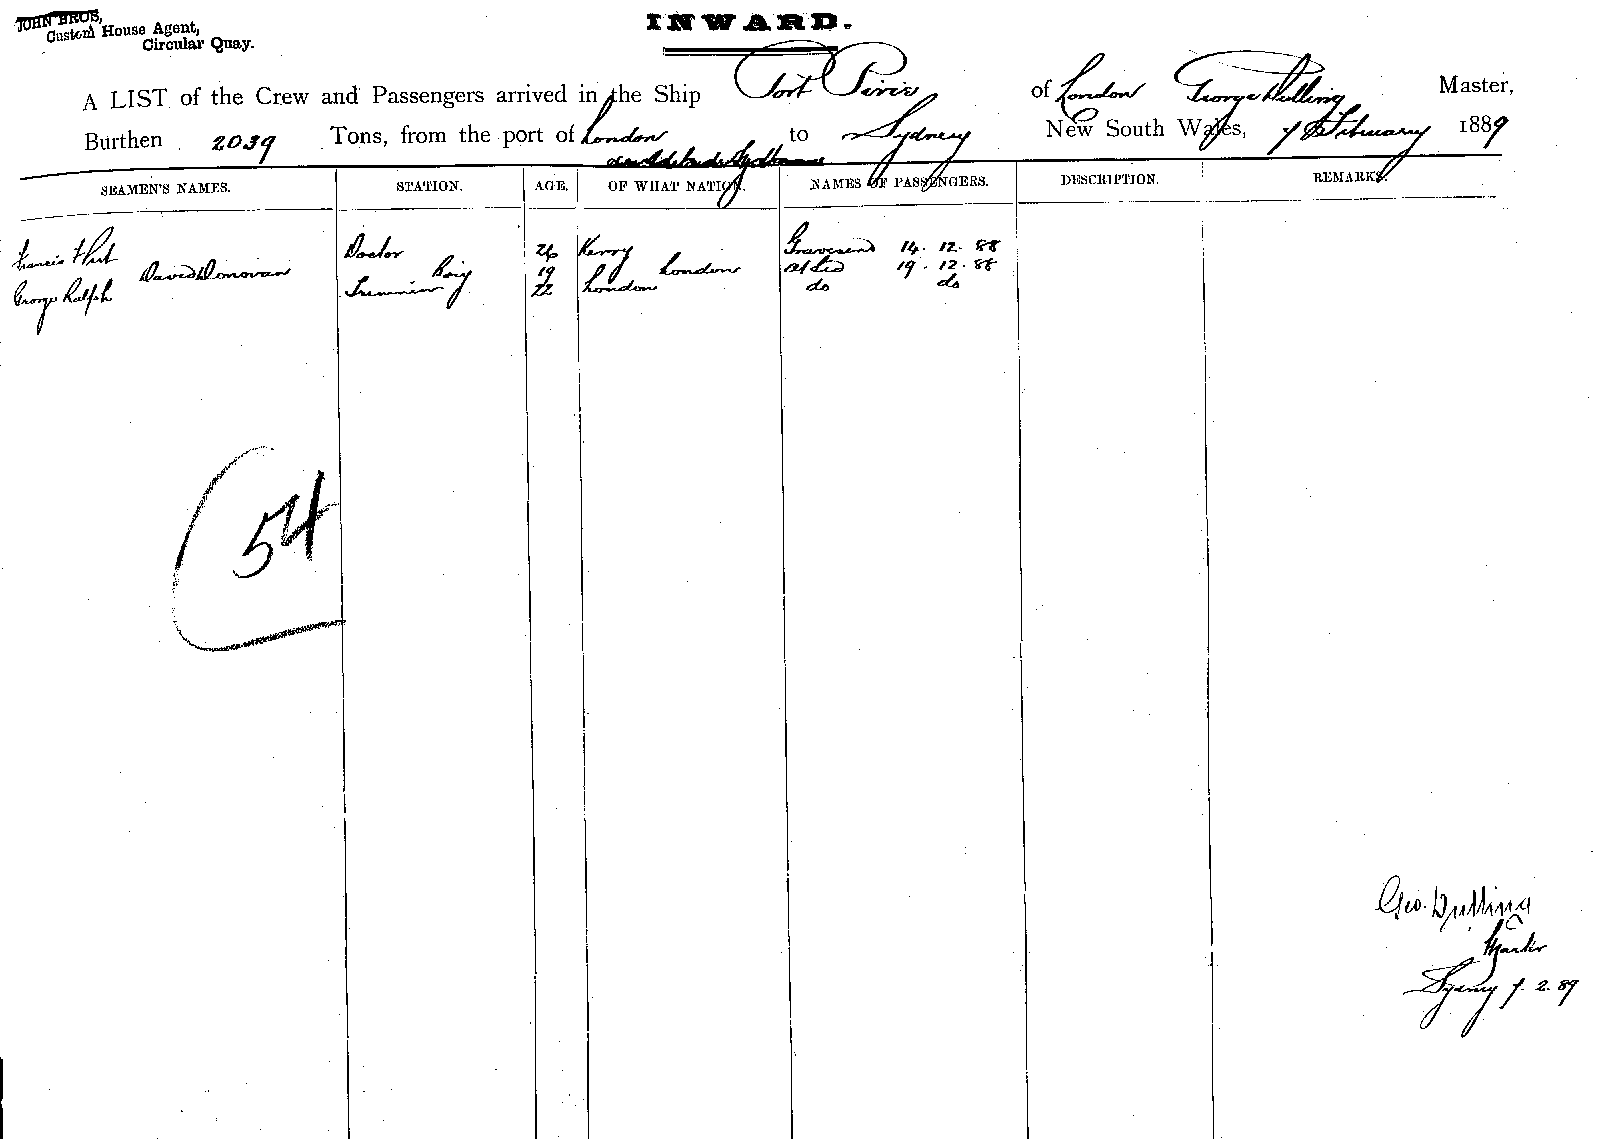 JOHN BROS,
Custom House Agent,
Circular Quay.
INWARD.
A LIST of the Crew and Passengers arrived in the Ship Port Pirie of London George Dulling Master,
Burthen 2039 Tons, from the port of London to Sydney New South Wales, 7 February 1889
SEAMEN'S NAMES. STATION. AGE. OF WHAT NATION. NAMES OF PASSENGERS. DESCRIPTION. REMARKS.
Francis Doctor Kerry Gravesend 14. 12. 88
David Donovan Boy 19 London 19. 12. 88
George Ralph Trimmer 22 London do do
54
Geo. Dulling
Master
Sydney 7. 2. 89